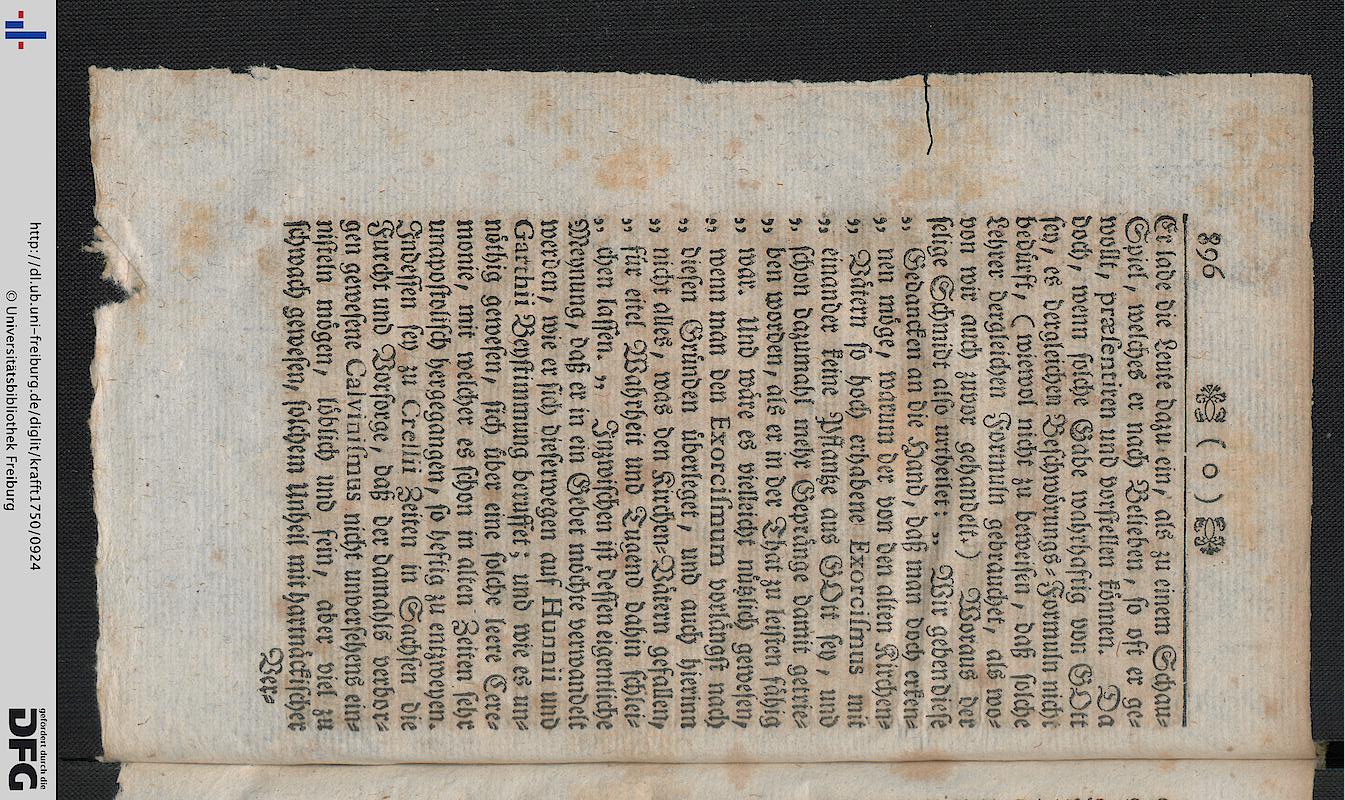 896 ( o )
Er lade die Leute dazu ein, als zu einem Schau-
Spiel, welches er nach Belieben, so oft er ge-
wollt, præsentiren und vorstellen können. Da
doch, wenn solche Gabe wahrhaftig von GOtt
sey, es dergleichen Beschwörungs-Formuln nicht
bedürft, (wiewol nicht zu beweisen, daß solche
Lehrer dergleichen Formuln gebrauchet, als wo-
von wir auch zuvor gehandelt.) Woraus der
selige Schmidt also urtheilet: „ Wir geben diese
„ Gedancken an die Hand, daß man doch erken-
„ nen möge, warum der von den alten Kirchen-
„ Vätern so hoch erhabene Exorcismus mit
„ einander keine Pflantze aus GOtt sey, und
„ schon dazumahl mehr Gepränge damit getrie-
„ ben worden, als er in der That zu leisten fähig
„ war. Und wäre es vielleicht nützlich gewesen,
„ wenn man den Exorcismum vorlängst nach
„ diesen Gründen überleget, und auch hierinn
„ nicht alles, was den Kirchen-Vätern gefallen,
„ für eitel Wahrheit und Tugend dahin schlei-
„ chen lassen. „ Inzwischen ist dessen eigentliche
Meynung, daß er in ein Gebet möchte verwandelt
werden, wie er sich dieserwegen auf Hunnii und
Garthii Beystimmung beruffet; und wie es un-
nöthig gewesen, sich über eine solche leere Cere-
monie, mit welcher es schon in alten Zeiten sehr
unapostolisch hergegangen, so heftig zu entzweyen.
Indessen sey zu Crellii Zeiten in Sachsen die
Furcht und Vorsorge, daß der damahls verbor-
gen gewesene Calvinismus nicht unversehens ein-
nisteln mögen, löblich und fein, aber viel zu
schwach gewesen, solchem Unheil mit hartnäckischer
Ver-
http://dl.ub.uni-freiburg.de/diglit/krafft1750/0924
© Universitätsbibliothek Freiburg
gefördert durch die
DFG